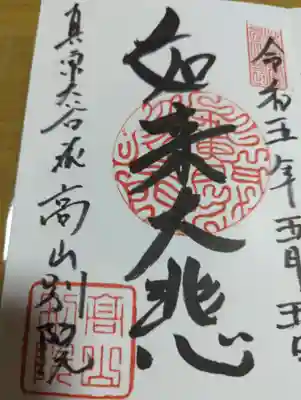 令和五年五月五日
如来大悲
真宗大谷派 高山別院